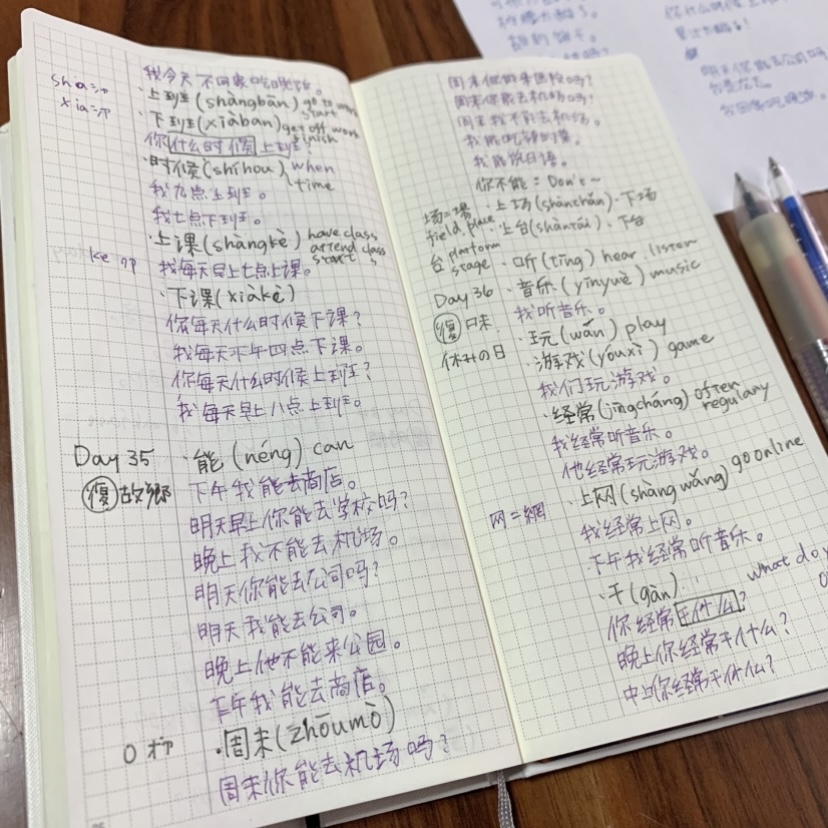 我今天不回家吃晚饭。
·上班(shàngbān) go to work
start
·下班(xiàbān) get off work
finish
你什么时候上班?
·时候(shíhou) when
time
我九点上班。
我七点下班。
·上课(shàngkè) have class
attend class
start
ke
我每天早上七点上课。
·下课(xiàkè)
你每天什么时候下课?
我每天下午四点下课。
你每天什么时候上班?
我每天早上八点上班。
Day 35
·能(néng) can
復 故郷
下午我能去商店。
明天早上你能去学校吗?
晚上我不能去机场。
明天你能去公司吗?
明天我能去公司。
晚上他不能来公园。
下午我能去商店。
·周末(zhōumò)
周末你能去机场吗?
周末你能去机场吗?
周末我不能去机场。
我能说日语。
你不能=Don't~
场=場
field, place
·上场(shànchǎn)·下场
·上台(shàntái)·下台
台 platform
stage
·听(tīng) hear, listen
Day 36
·音乐(yīnyuè) music
復 口味
我听音乐。
休みの日
·玩(wán) play
·游戏(yóuxì) game
我们玩游戏。
·经常(jīngcháng) often
regulary
我经常听音乐。
他经常玩游戏。
·上网(shàng wǎng) go online
网=網
我经常上网。
下午我经常听音乐。
·干(gàn)
what do y
你经常干什么?
晚上你经常干什么?
中上你经常干什么?